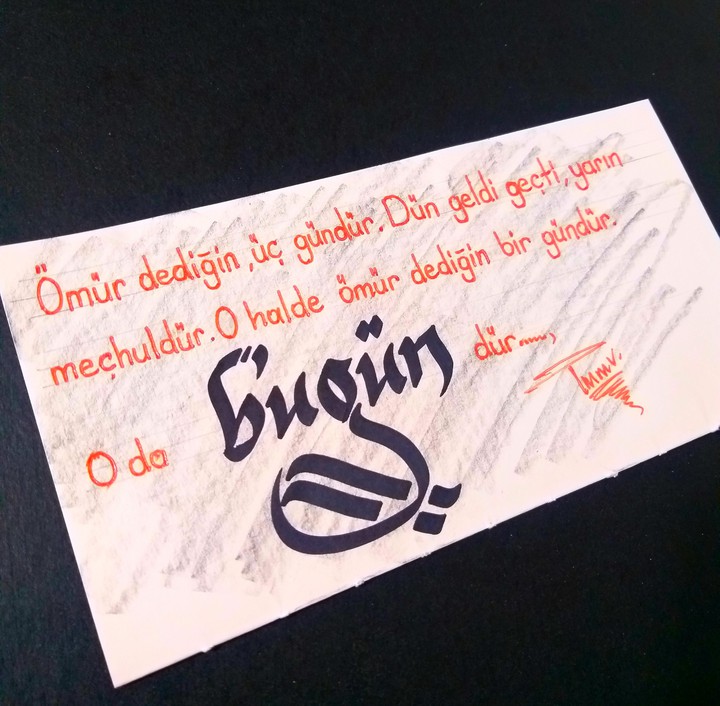 Ömür dediğin, üç gündür. Dün geldi geçti, yarın
meçhuldür. O halde ömür dediğin bir gündür.
O da bugün dür